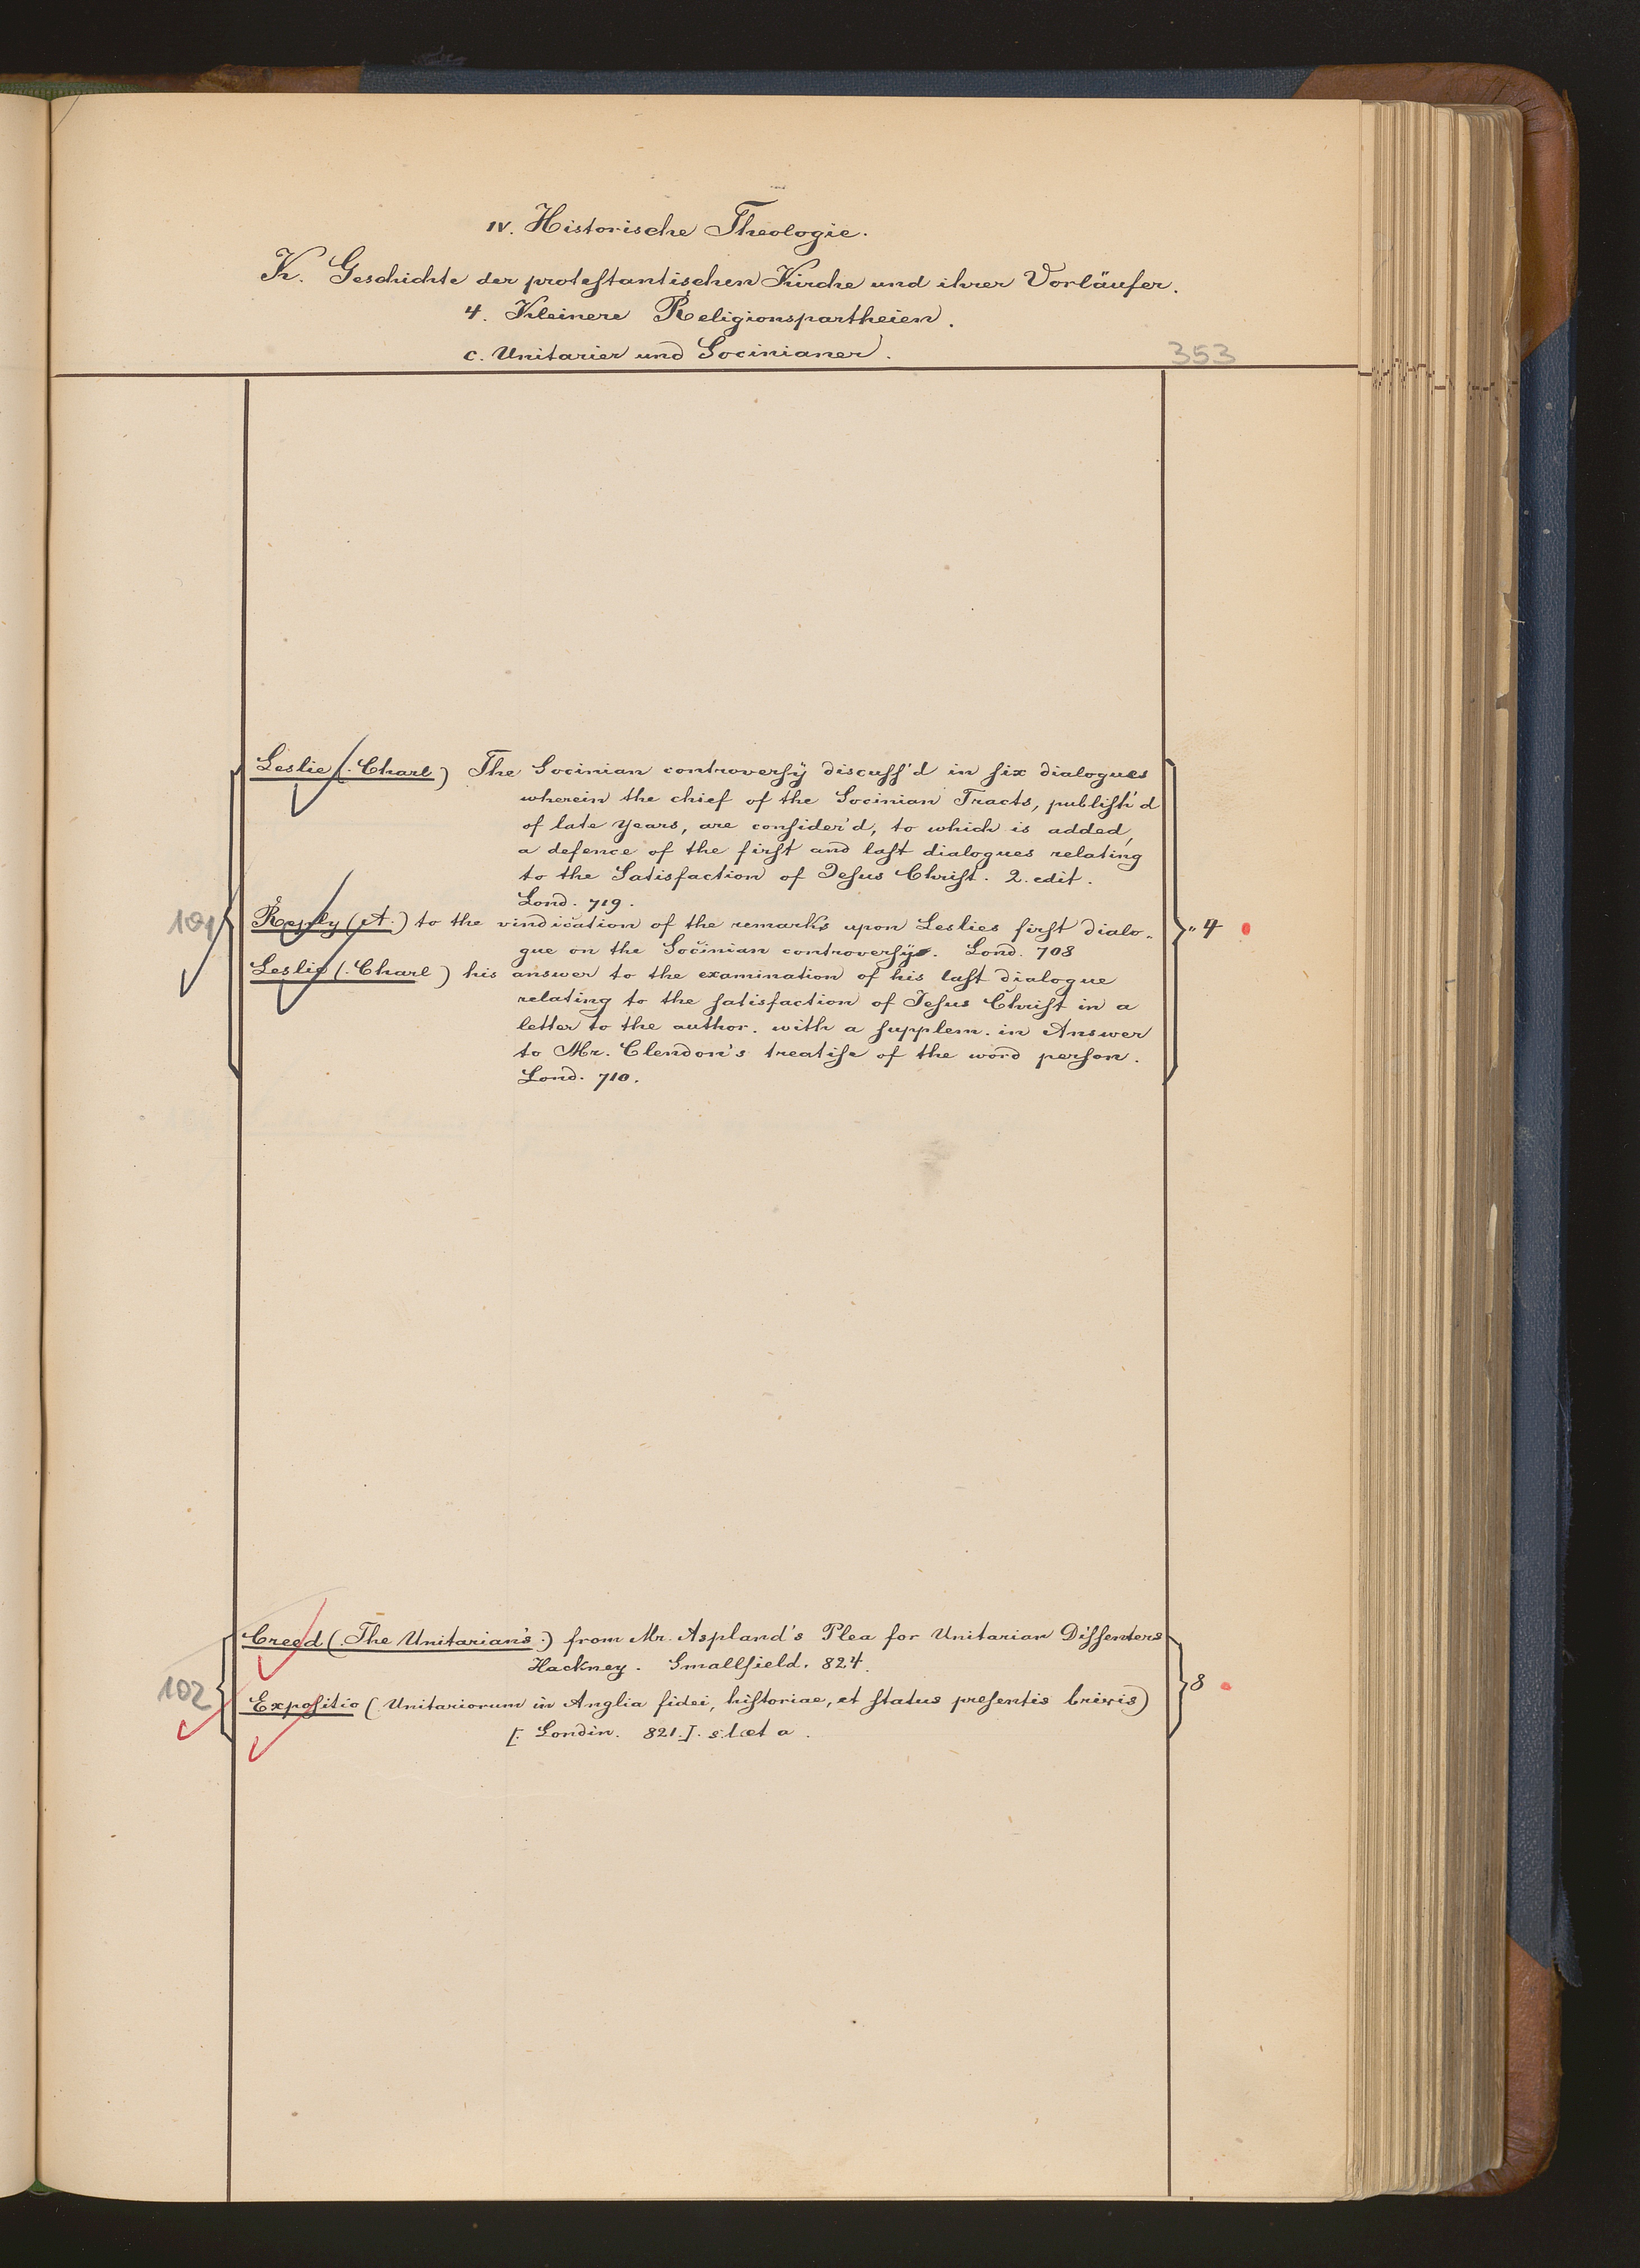 IV. Historische Theologie.
K. Geschichte der protestantischen Kirche und ihrer Vorläufer.
4. Kleinere Religionspartheien.
c. Unitarier und Socinianer.
353
Leslie (: Charl) The Socinian controversÿ discuss'd in six dialogues
wherein the chief of the Socinian Tracts, publish'd
of late years, are consider'd, to which is added,
a defence of the first and last dialogues relating
to the Satisfaction of Jesus Christ. 2. edit.
Lond. 719.
101
Reply (A.) to the vindication of the remarks upon Leslies first dialo„
gue on the Socinian controversy. Lond. 708
„ 4
Leslie (: Charl) his answer to the examination of his last dialogue
relating to the satisfaction of Jesus Christ in a
letter to the author. with a supplem. in Answer
to Mr. Clendon's treatise of the word person.
Lond. 710.
Creed (: The Unitarian's :) from Mr. Aspland's Plea for Unitarian Dissenters
Hackney. Smallfield. 824.
102
8
Expositio (Unitariorum in Anglia fidei, historiae, et status presentis brevis)
[: Londin. 821.]. s. l. et a.